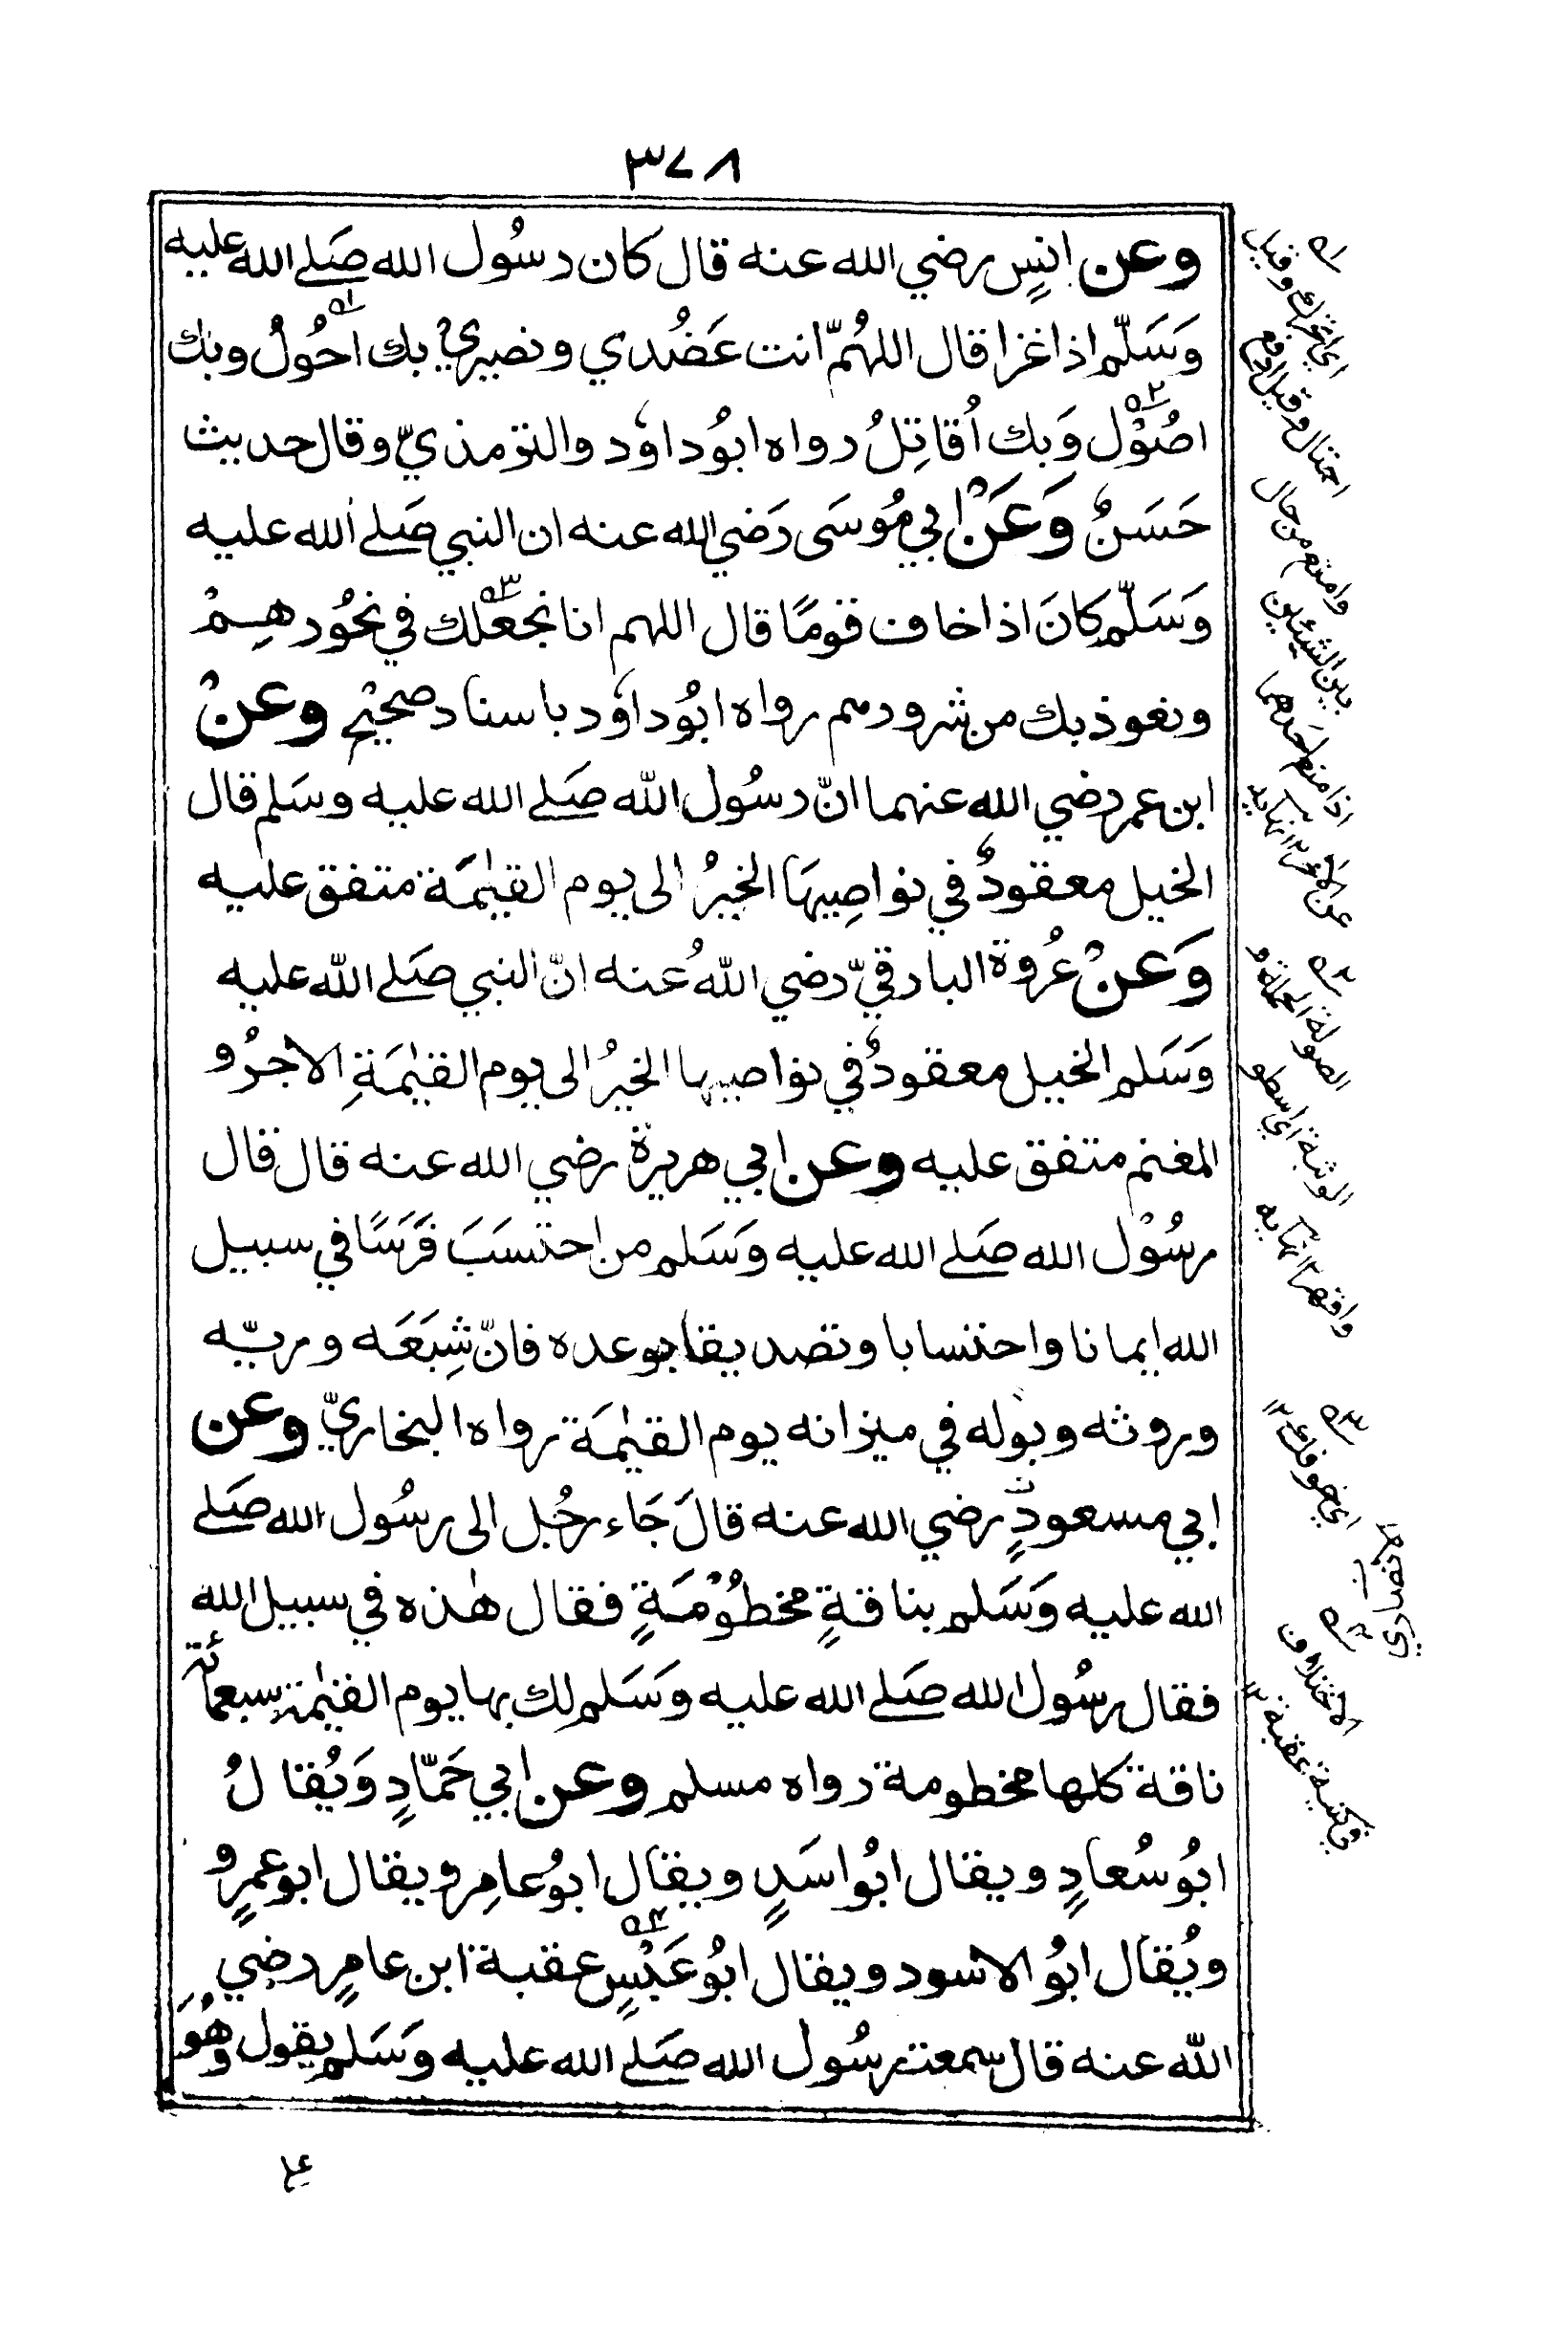 ٣٧٨
وعن انسٍ رضي الله عنه قال كان رسُول الله صَلى الله عليه
وَسَلّم اذا غزا قال اللهُمّ انت عَضُدي ونصيري بك احُولُ وبك
اصُوْل وَبك اُقاتِلُ رواه ابُو داوٗد والترمذيّ وقال حديث
حَسَنٌ وَعَنْ ابي مُوسَى رَضي الله عنه ان النبي صَلى الله عليه
وَسَلّم كانَ اذا خاف قومًا قال اللهم انا نجعلك في نحُورهِمْ
ونعوذ بك من شرورهم رواه ابُو داوٗد باسناد صحيْحٍ وعنْ
ابن عمر رضي الله عنهما انّ رسُول الله صَلى الله عليه وسَلم قال
الخيل معقودٌ في نواصِيهَا الخيرُ الى يوم القيٰمَة متفق عليه
وَعنْ عُروة البارقيّ رضي اللهُ عنه انّ النبي صَلى الله عليه
وَسَلم الخيل معقودٌ في نواصيها الخيرُ الى يوم القيٰمَةِ الاجرُ و
المغنم متفق عليه وعن ابي هريرة رضي الله عنه قال قال
رسُوْل الله صَلى الله عليه وَسَلم من احتسَبَ فَرَسًا في سبيل
الله ايمانا واحتسابا وتصديقا بوعده فانّ شِبَعَه وريّه
وروثه وبوله في ميزانه يوم القيٰمَة رواه البخاريّ وعن
ابي مسعودٍ رضي الله عنه قالَ جَاء رجُل الى رسُول الله صَلى
الله عليه وَسَلم بناقةٍ مخطُوْمَةٍ فقال هٰذه في سبيل الله
فقال رسُول الله صَلى الله عليه وَسَلم لك بها يوم القيٰمة سبعمائة
ناقة كلها مخطومة رواه مسلم وعن ابي حَمّادٍ وَيُقالُ
ابُو سُعادٍ ويقال ابُو اسَدٍ ويقال ابُو عامِرٍ ويقال ابو عمرٍو
ويُقال ابُو الاسود ويقال ابُو عَبْسٍ عقبة ابن عامرٍ رضي
الله عنه قال سمعت رسُول الله صَلى الله عليه وَسَلم يقول وهُوَ
اي اتحرك وقيل
احتال وقيل ادفع
وامنع من حال
بين الشيئين
اذا منع احدهما
عن الآخر ١٢ نهايه
الصولة الحملة و
الوثبة اي اسطو
واقهر ١٢ نهايه
اي خوفك ١٢
الانصاري
الاختلاف
في كنية عقبة ١٢